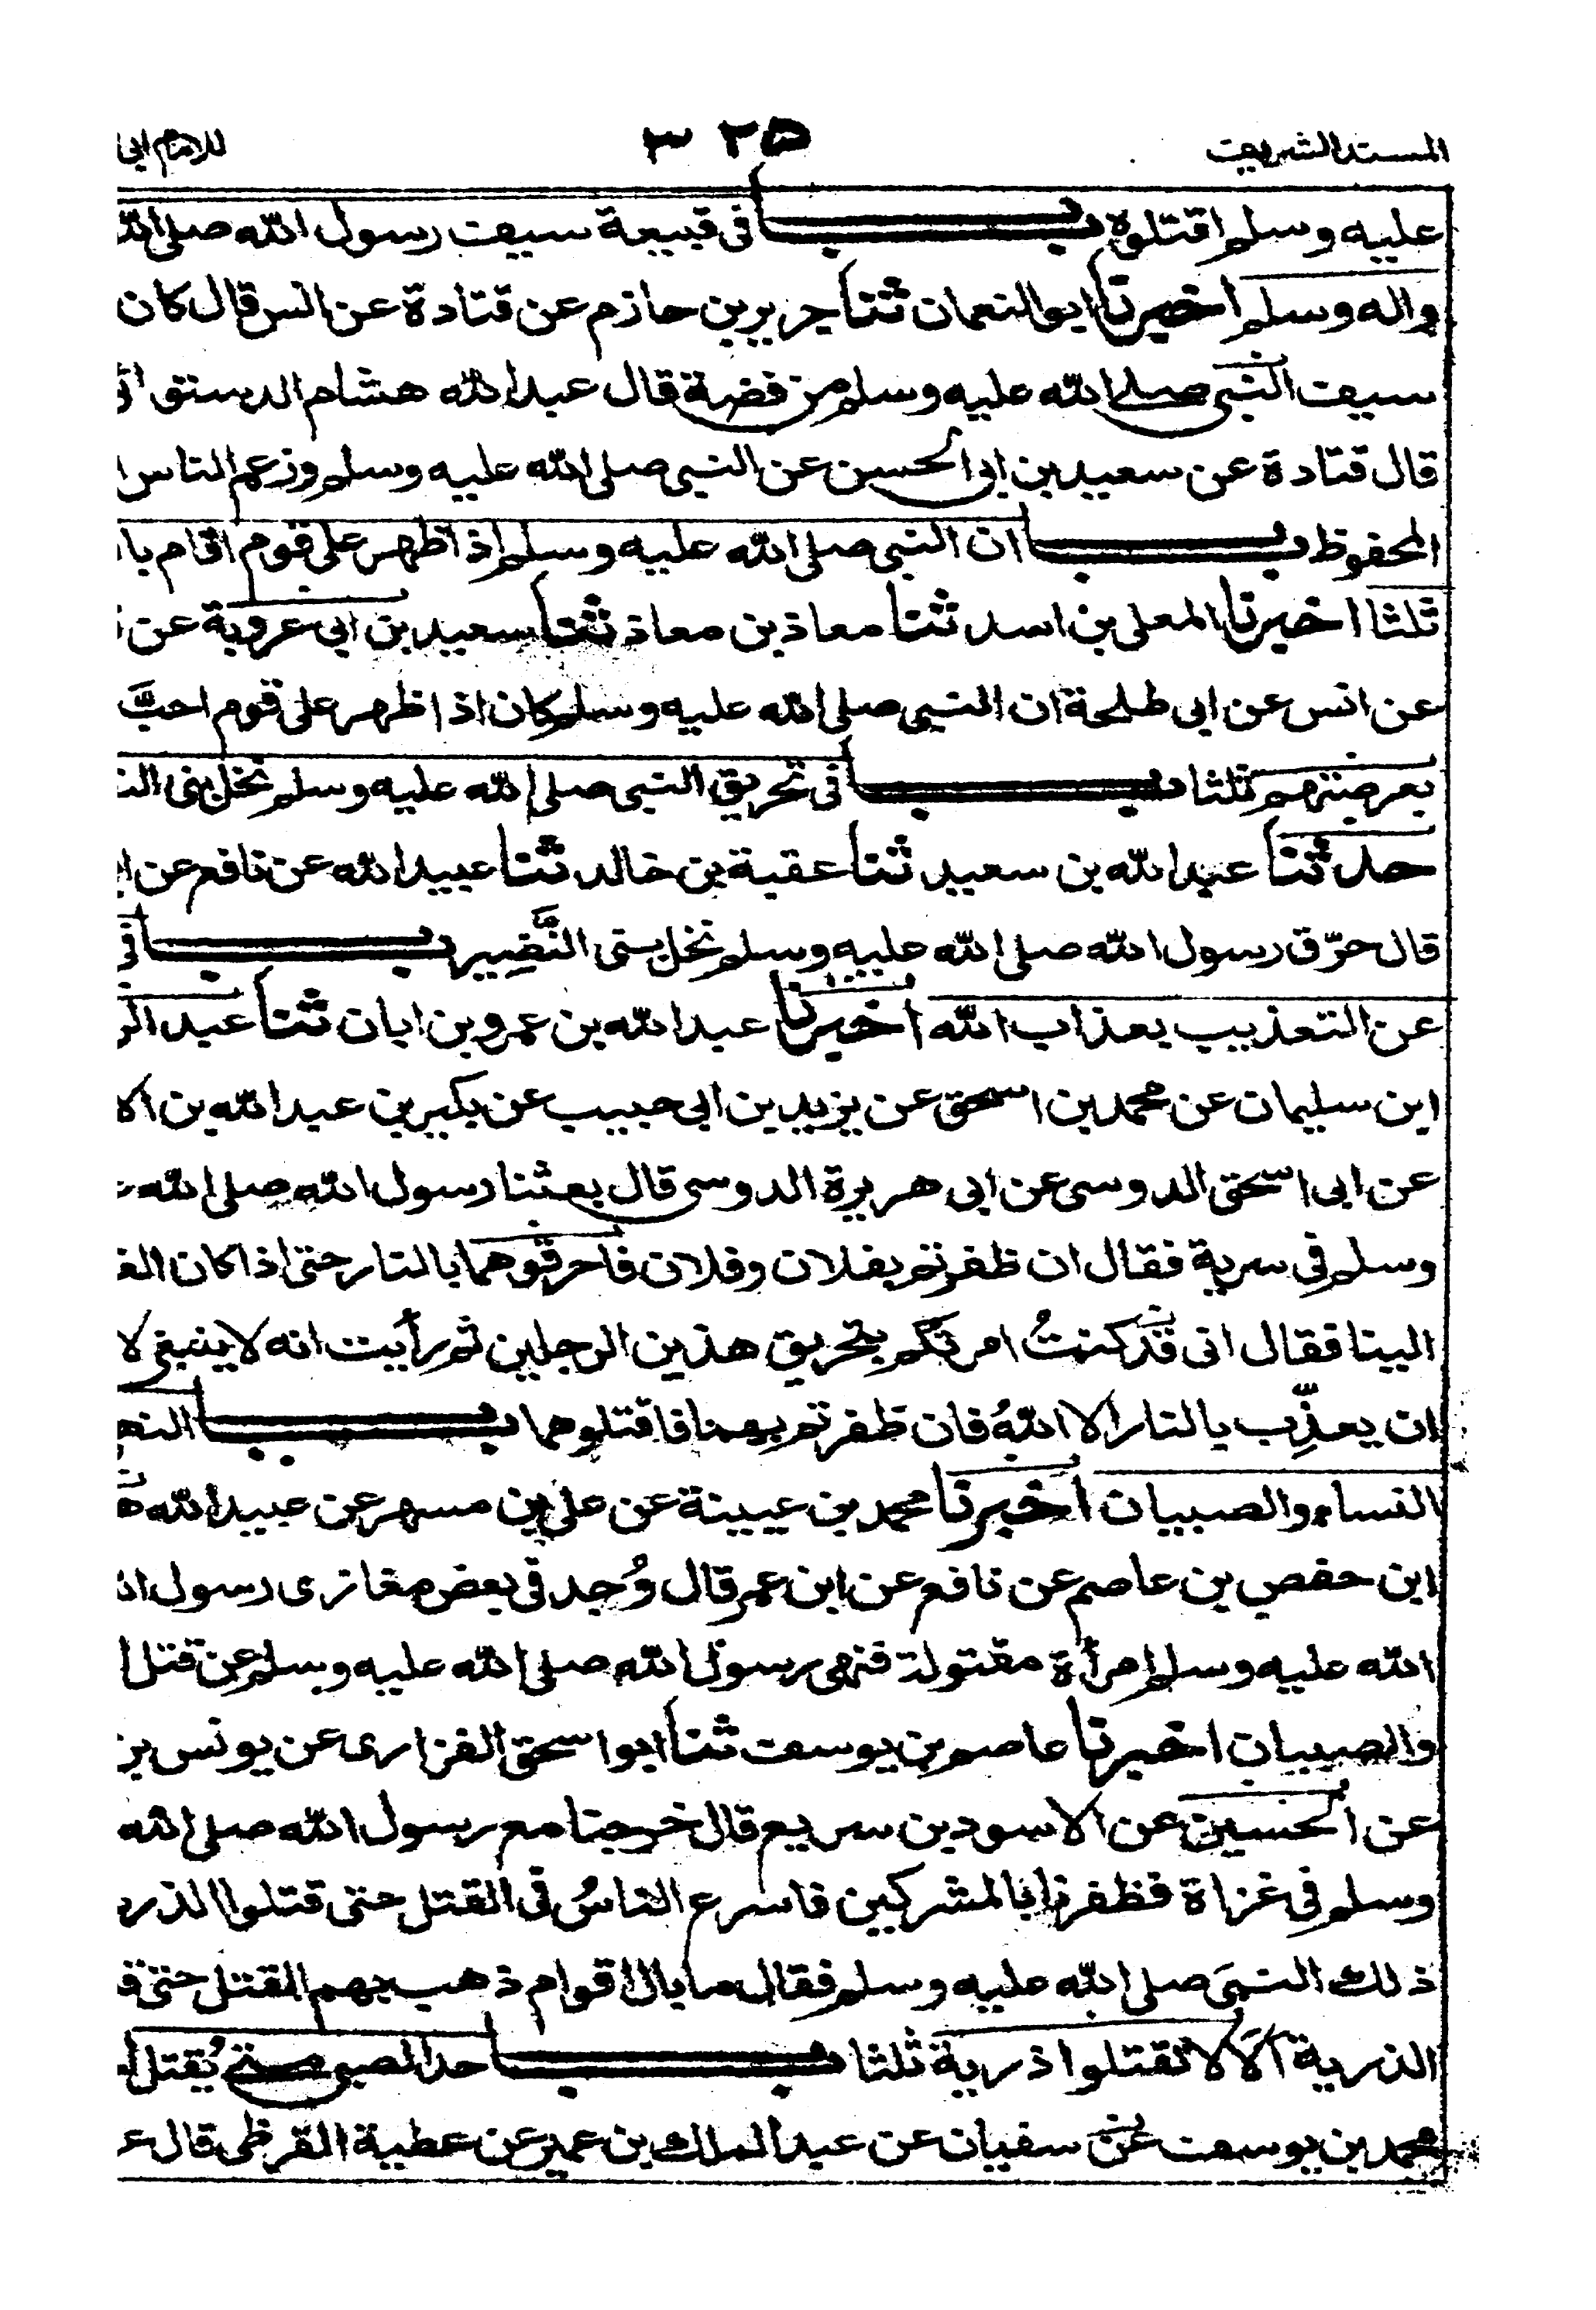 المسند الشريف ٣٢٥ للامام ابى
عليه وسلم اقتلوه باب فى قبيعة سيف رسول الله صلى الله
واله وسلم اخبرنا ابو النعمان ثنا جرير بن حازم عن قتادة عن انس قال كان
سيف النبى صلى الله عليه وسلم من فضة قال عبد الله هشام الدستوائى
قال قتادة عن سعيد بن ابى الحسن عن النبى صلى الله عليه وسلم وزعم الناس
المحفوظ باب ان النبى صلى الله عليه وسلم اذا ظهر على قوم اقام
ثلثا اخبرنا المعلى بن اسد ثنا معاذ بن معاذ ثنا سعيد بن ابى عروبة عن
عن انس عن ابى طلحة ان النبى صلى الله عليه وسلم كان اذا ظهر على قوم احبَّ
بعرصتهم ثلثا باب فى تحريق النبى صلى الله عليه وسلم نخل بنى
حدثنا عبد الله بن سعيد ثنا عقبة بن خالد ثنا عبيد الله عن نافع عن
قال حرّق رسول الله صلى الله عليه وسلم نخل بنى النَّضِير باب فى
عن التعذيب بعذاب الله اخبرنا عبد الله بن عمرو بن ابان ثنا عبد
ابن سليمان عن محمد بن اسحق عن يزيد بن ابى حبيب عن بكير بن عبد الله بن
عن ابى اسحق الدوسى عن ابى هريرة الدوسى قال بعثنا رسول الله صلى الله
وسلم فى سرية فقال ان ظفرتم بفلان وفلان فاحرقوهما بالنار حتى اذا كان
الينا فقال انى قد كنتُ امرتكم بتحريق هذين الرجلين ثم رأيت انه لا ينبغى
ان يعذِّب بالنار الا اللهُ فان ظفرتم بهما فاقتلوهما باب
النساء والصبيان اخبرنا محمد بن عيينة عن على بن مسهر عن عبيد الله
ابن حفص بن عاصم عن نافع عن ابن عمر قال وُجد فى بعض مغازى رسول
الله عليه وسلم امرأة مقتولة فنهى رسول الله صلى الله عليه وسلم عن قتل
والصبيان اخبرنا عاصم بن يوسف ثنا ابو اسحق الفزارى عن يونس بن
عن الحسن عن الاسود بن سريع قال خرجنا مع رسول الله صلى الله
وسلم فى غزاة فظفرنا بالمشركين فاسرع الناسُ فى القتل حتى قتلوا
ذلك النبىَ صلى الله عليه وسلم فقال ما بال اقوام ذهب بهم القتل حتى
الذرية اَلَا لا تقتلوا ذرية ثلثا باب حد الصبى متى يُقتل
محمد بن يوسف عن سفيان عن عبد الملك بن عمير عن عطية القرظى قال